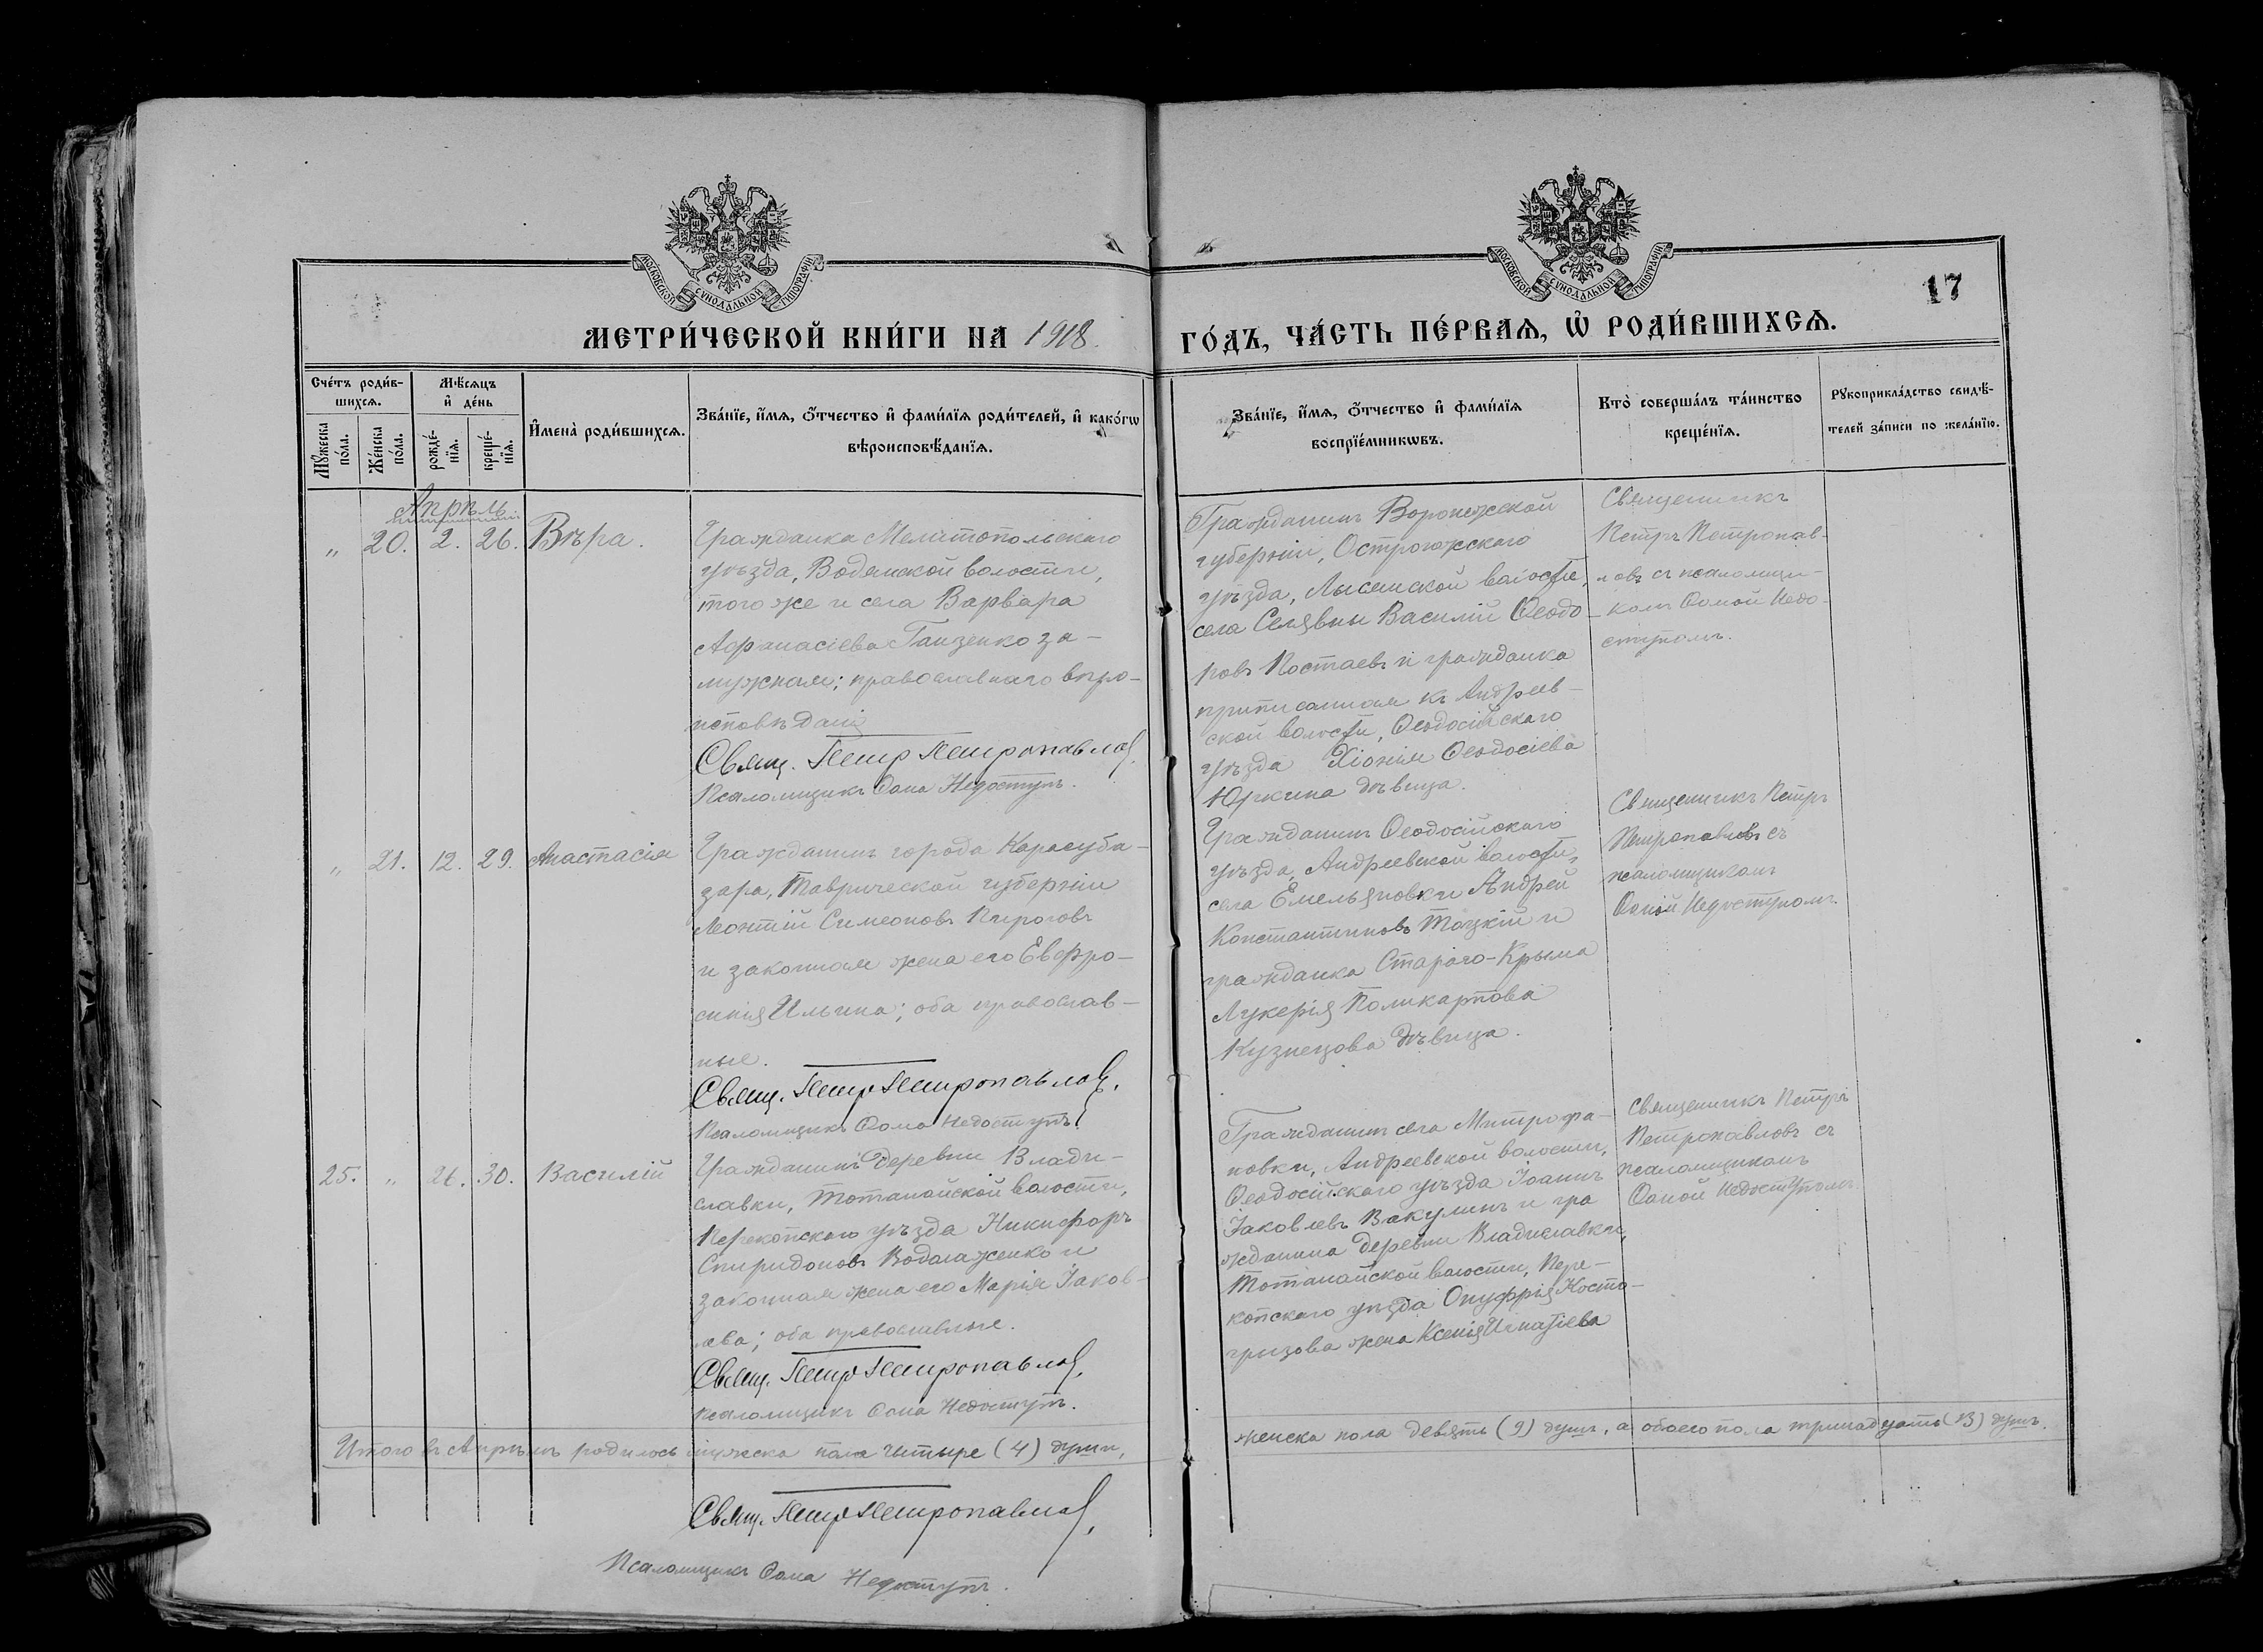 МОСКОВСКОЙ СУНОДАЛЬНОЙ ТИПОГРАФІИ
МОСКОВСКОЙ СУНОДАЛЬНОЙ ТИПОГРАФІИ
17
МЕТРИ́ЧЕСКОЙ КНИ́ГИ НА 1918.
ГО́ДЪ, ЧА́СТЬ ПЕ́РВАѦ, Ѽ РОДИ́ВШИХСѦ.
Сче́тъ роди́в-
шихсѧ.
Мꙋ́жеска по́ла.
Же́нска по́ла.
Мѣ́сѧцъ
и҆ де́нь
рожде́-
нїѧ.
креще́-
нїѧ.
И҆мена̀ роди́вшихсѧ.
Зва́нїе, и҆́мѧ, ѻ҆́тчество и҆ фами́лїѧ роди́телей, и҆ како́гѡ
вѣроисповѣ́данїѧ.
Зва́нїе, и҆́мѧ, ѻ҆́тчество и҆ фами́лїѧ
воспрїе́мникѡвъ.
Кто̀ соверша́лъ та́инство
креще́нїѧ.
Рꙋкоприкла́дство свидѣ́-
телей за́писи по жела́нїю.
Апрѣль
„ 20. 2. 26. Вѣра.
Гражданка Мелитопольскаго
уѣзда, Водянской волости,
того же и села Варвара
Афанасіева Ганзенко за-
мужняя; православнаго вѣро-
исповѣданія
Свящ. Петр Петропавлов.
Псаломщикъ Ѳома Недоступъ.
Гражданинъ Воронежской
губерніи, Острогожскаго
уѣзда, Лысенской волости,
села Селявны Василій Ѳеодо-
ровъ Постаевъ и гражданка
приписанная къ Андреев-
ской волости, Ѳеодосійскаго
уѣзда Хіонія Ѳеодосіева
Юркина дѣвица.
Священникъ
Петръ Петропав-
ловъ съ псаломщи-
комъ Ѳомой Недо-
ступомъ.
„ 21. 12. 29. Анастасія
Гражданинъ города Карасуба-
зара, Таврической губерніи
Леонтій Симеоновъ Пироговъ
и законная жена его Евфро-
синія Ильина; оба православ-
ные.
Свящ. Петр Петропавлов.
Псаломщикъ Ѳома Недоступъ
Гражданинъ Ѳеодосійскаго
уѣзда, Андреевской волости,
села Емельяновки Андрей
Константиновъ Тоцкій и
гражданка Стараго-Крыма
Лукерія Поликарпова
Кузнецова дѣвица.
Священникъ Петръ
Петропавловъ съ
псаломщикомъ
Ѳомой Недоступомъ.
25. „ 26. 30. Василій
Гражданинъ деревни Влади-
славки, Тотанайской волости,
Перекопскаго уѣзда Никифоръ
Спиридоновъ Водолаженко и
законная жена его Марія Іаков-
лева; оба православные.
Свящ. Петр Петропавлов.
Псаломщикъ Ѳома Недоступъ.
Гражданинъ села Митрофа-
новки, Андреевской волости,
Ѳеодосійскаго уѣзда Іоаннъ
Іаковлевъ Вакулинъ и гра
жданина деревни Владиславки,
Тотанайской волости, Пере-
копскаго уѣзда Онуфрія Косто-
грызова жена Ксенія Игнатіева
Священникъ Петръ
Петропавловъ съ
псаломщикомъ
Ѳомой Недоступомъ.
Итого въ Апрѣлѣ родилось мужеска пола четыре (4) души,
женска пола девять (9) душъ, а обоего пола тринадцать (13) душъ.
Свящ. Петр Петропавлов.
Псаломщикъ Ѳома Недоступъ.